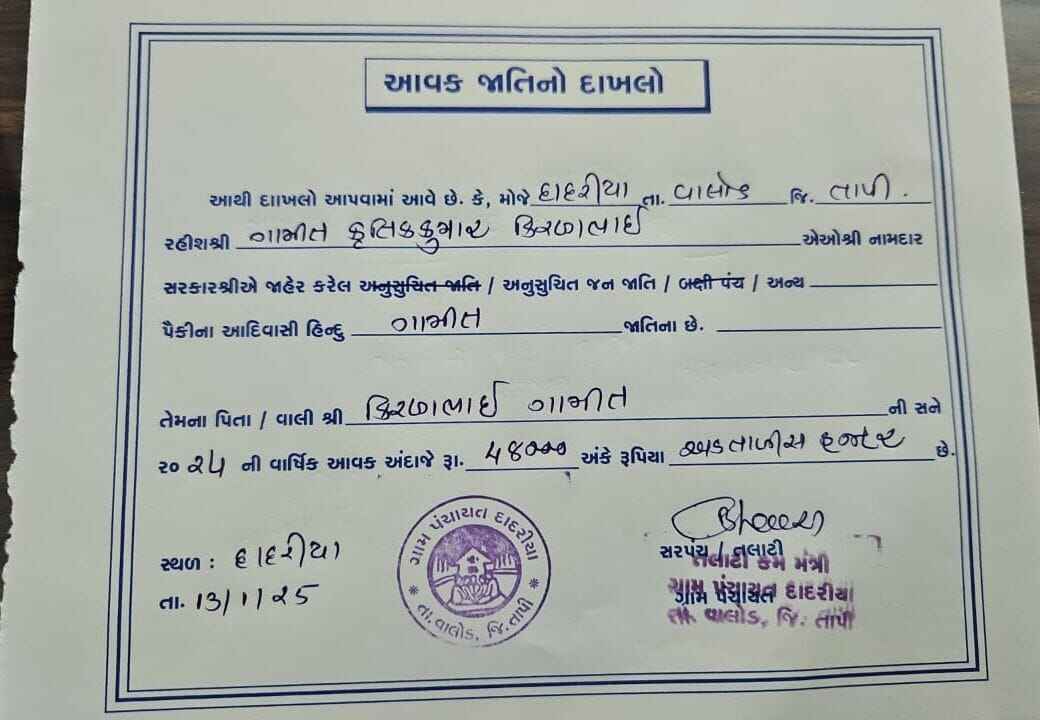 આવક જાતિનો દાખલો
આથી દાાખલો આપવામાં આવે છે. કે, મોજે દાદરીયા તા. વાલોડ જિ. તાપી.
રહીશશ્રી ગામીત કૃતિકકુમાર કિરણભાઈ એઓશ્રી નામદાર
સરકારશ્રીએ જાહેર કરેલ અનુસુચિત જાતિ / અનુસુચિત જન જાતિ / બક્ષી પંચ / અન્ય
પૈકીના આદિવાસી હિન્દુ ગામીત જાતિના છે.
તેમના પિતા / વાલી શ્રી કિરણભાઈ ગામીત ની સને
૨૦૨૫ ની વાર્ષિક આવક અંદાજે રૂા. ૪8૦૦૦ અંકે રૂપિયા અડતાળીસ હજાર છે.
સ્થળ : દાદરીયા
તા. 13/1/25
ગ્રામ પંચાયત દાદરીયા
તા. વાલોડ, જિ. તાપી
સરપંચ / તલાટી
તલાટી કમ મંત્રી
ગ્રામ પંચાયત
ગ્રામ પંચાયત દાદરીયા
તા. વાલોડ, જિ. તાપી